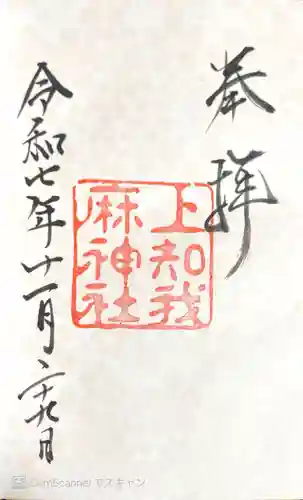 奉拝
上知我
麻神社
令和七年十一月二十九日
CamScanner でスキャン